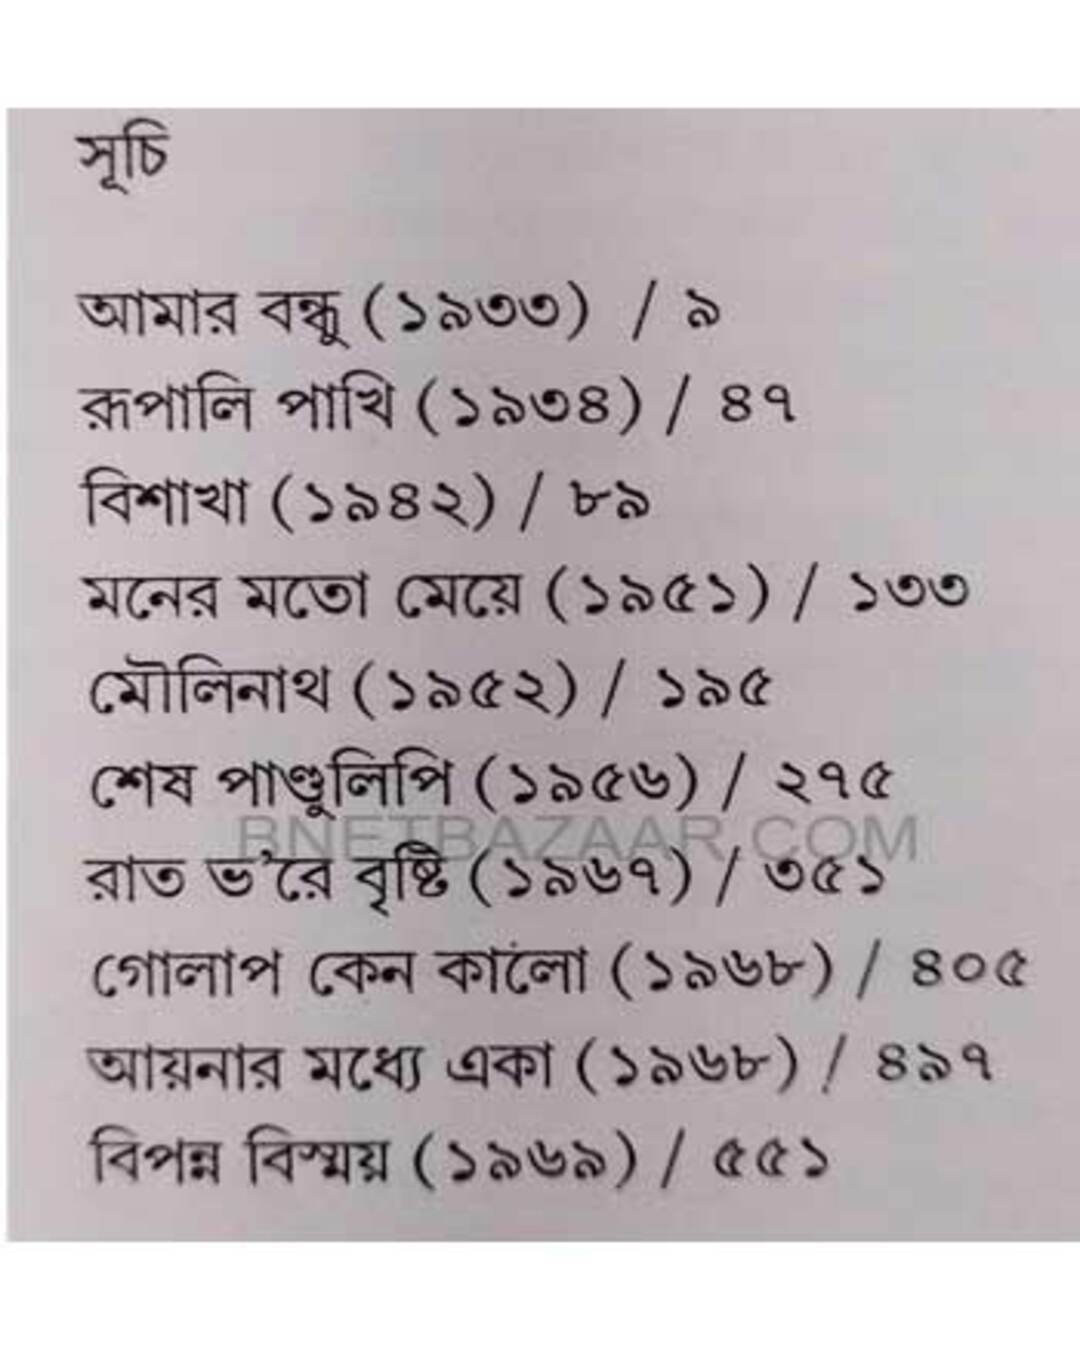 সূচি
আমার বন্ধু (১৯৩৩) / ৯
রূপালি পাখি (১৯৩৪) / ৪৭
বিশাখা (১৯৪২) / ৮৯
মনের মতো মেয়ে (১৯৫১) / ১৩৩
মৌলিনাথ (১৯৫২) / ১৯৫
শেষ পাণ্ডুলিপি (১৯৫৬) / ২৭৫
BNETBAZAAR.COM
রাত ভ'রে বৃষ্টি (১৯৬৭) / ৩৫১
গোলাপ কেন কালো (১৯৬৮) / ৪০৫
আয়নার মধ্যে একা (১৯৬৮) / ৪৯৭
বিপন্ন বিস্ময় (১৯৬৯) / ৫৫১